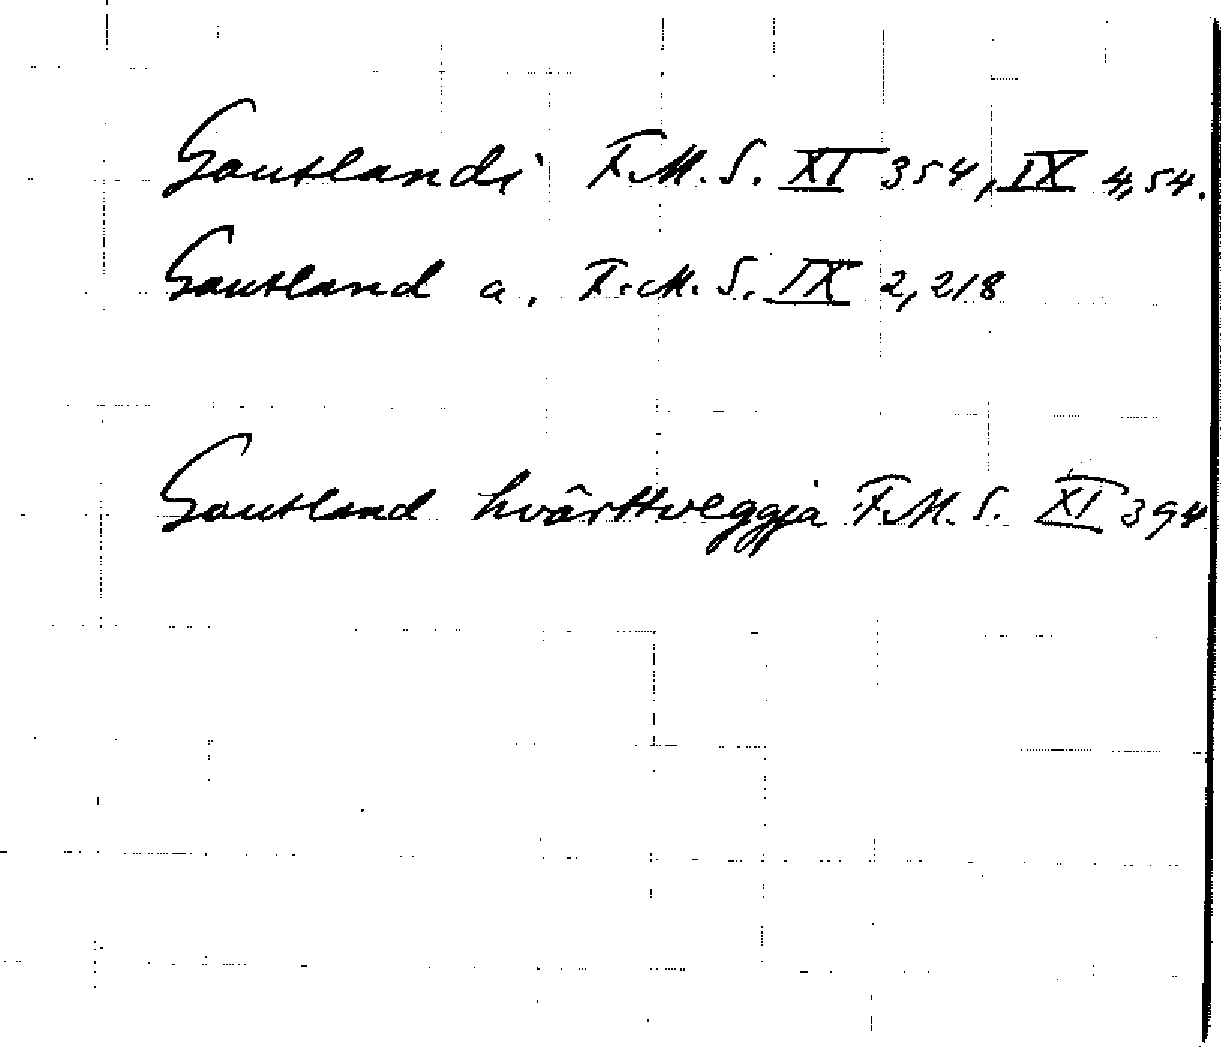 Gautlandi F.M.S. XI 354, IX 4,54.
Gautland a. F.M.S. IX 2,218
Gautland hvârttveggja F.M.S. XI 394